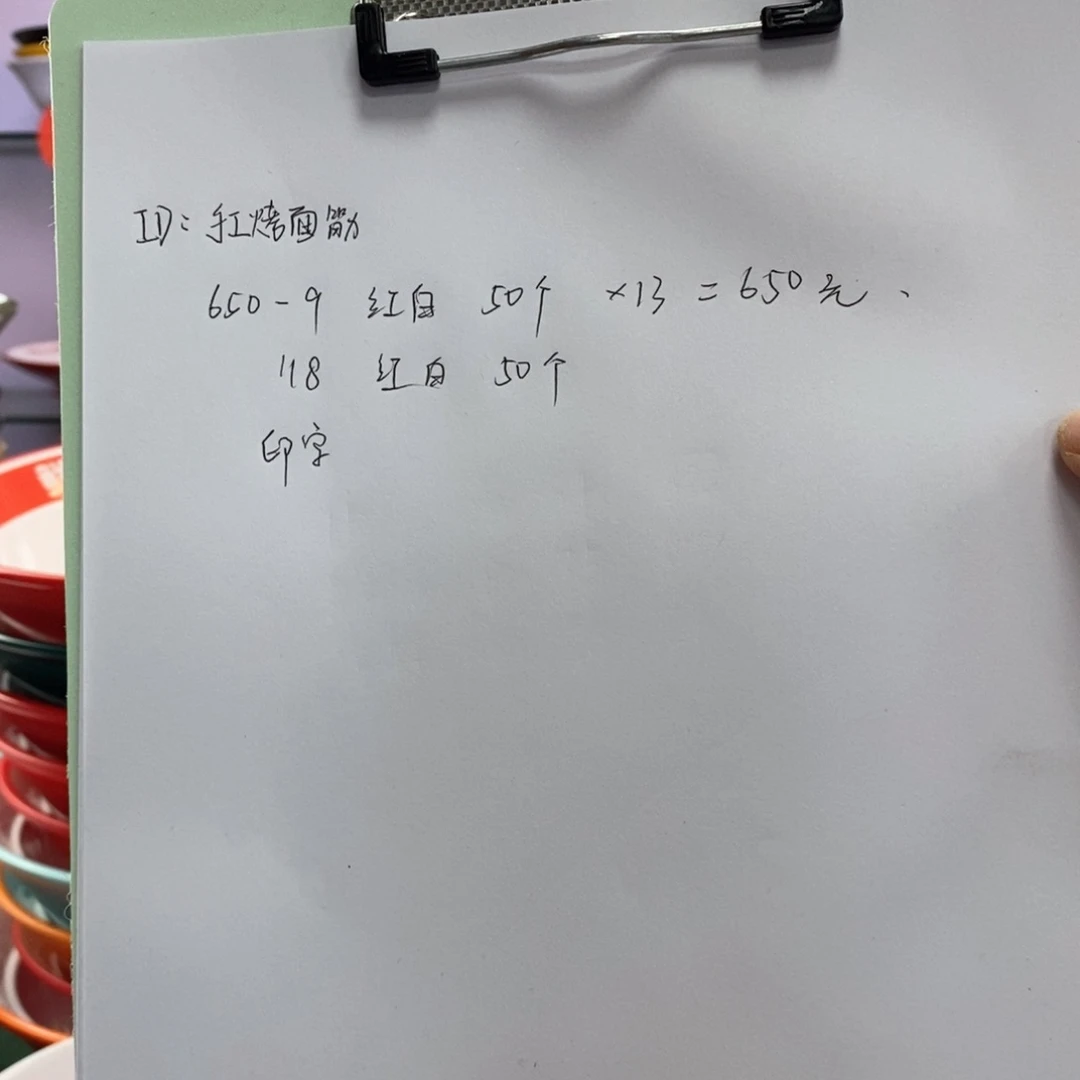 ID: 手工烤面筋
650-9 红白 50个 ×13 = 650元、
118 红白 50个
印字